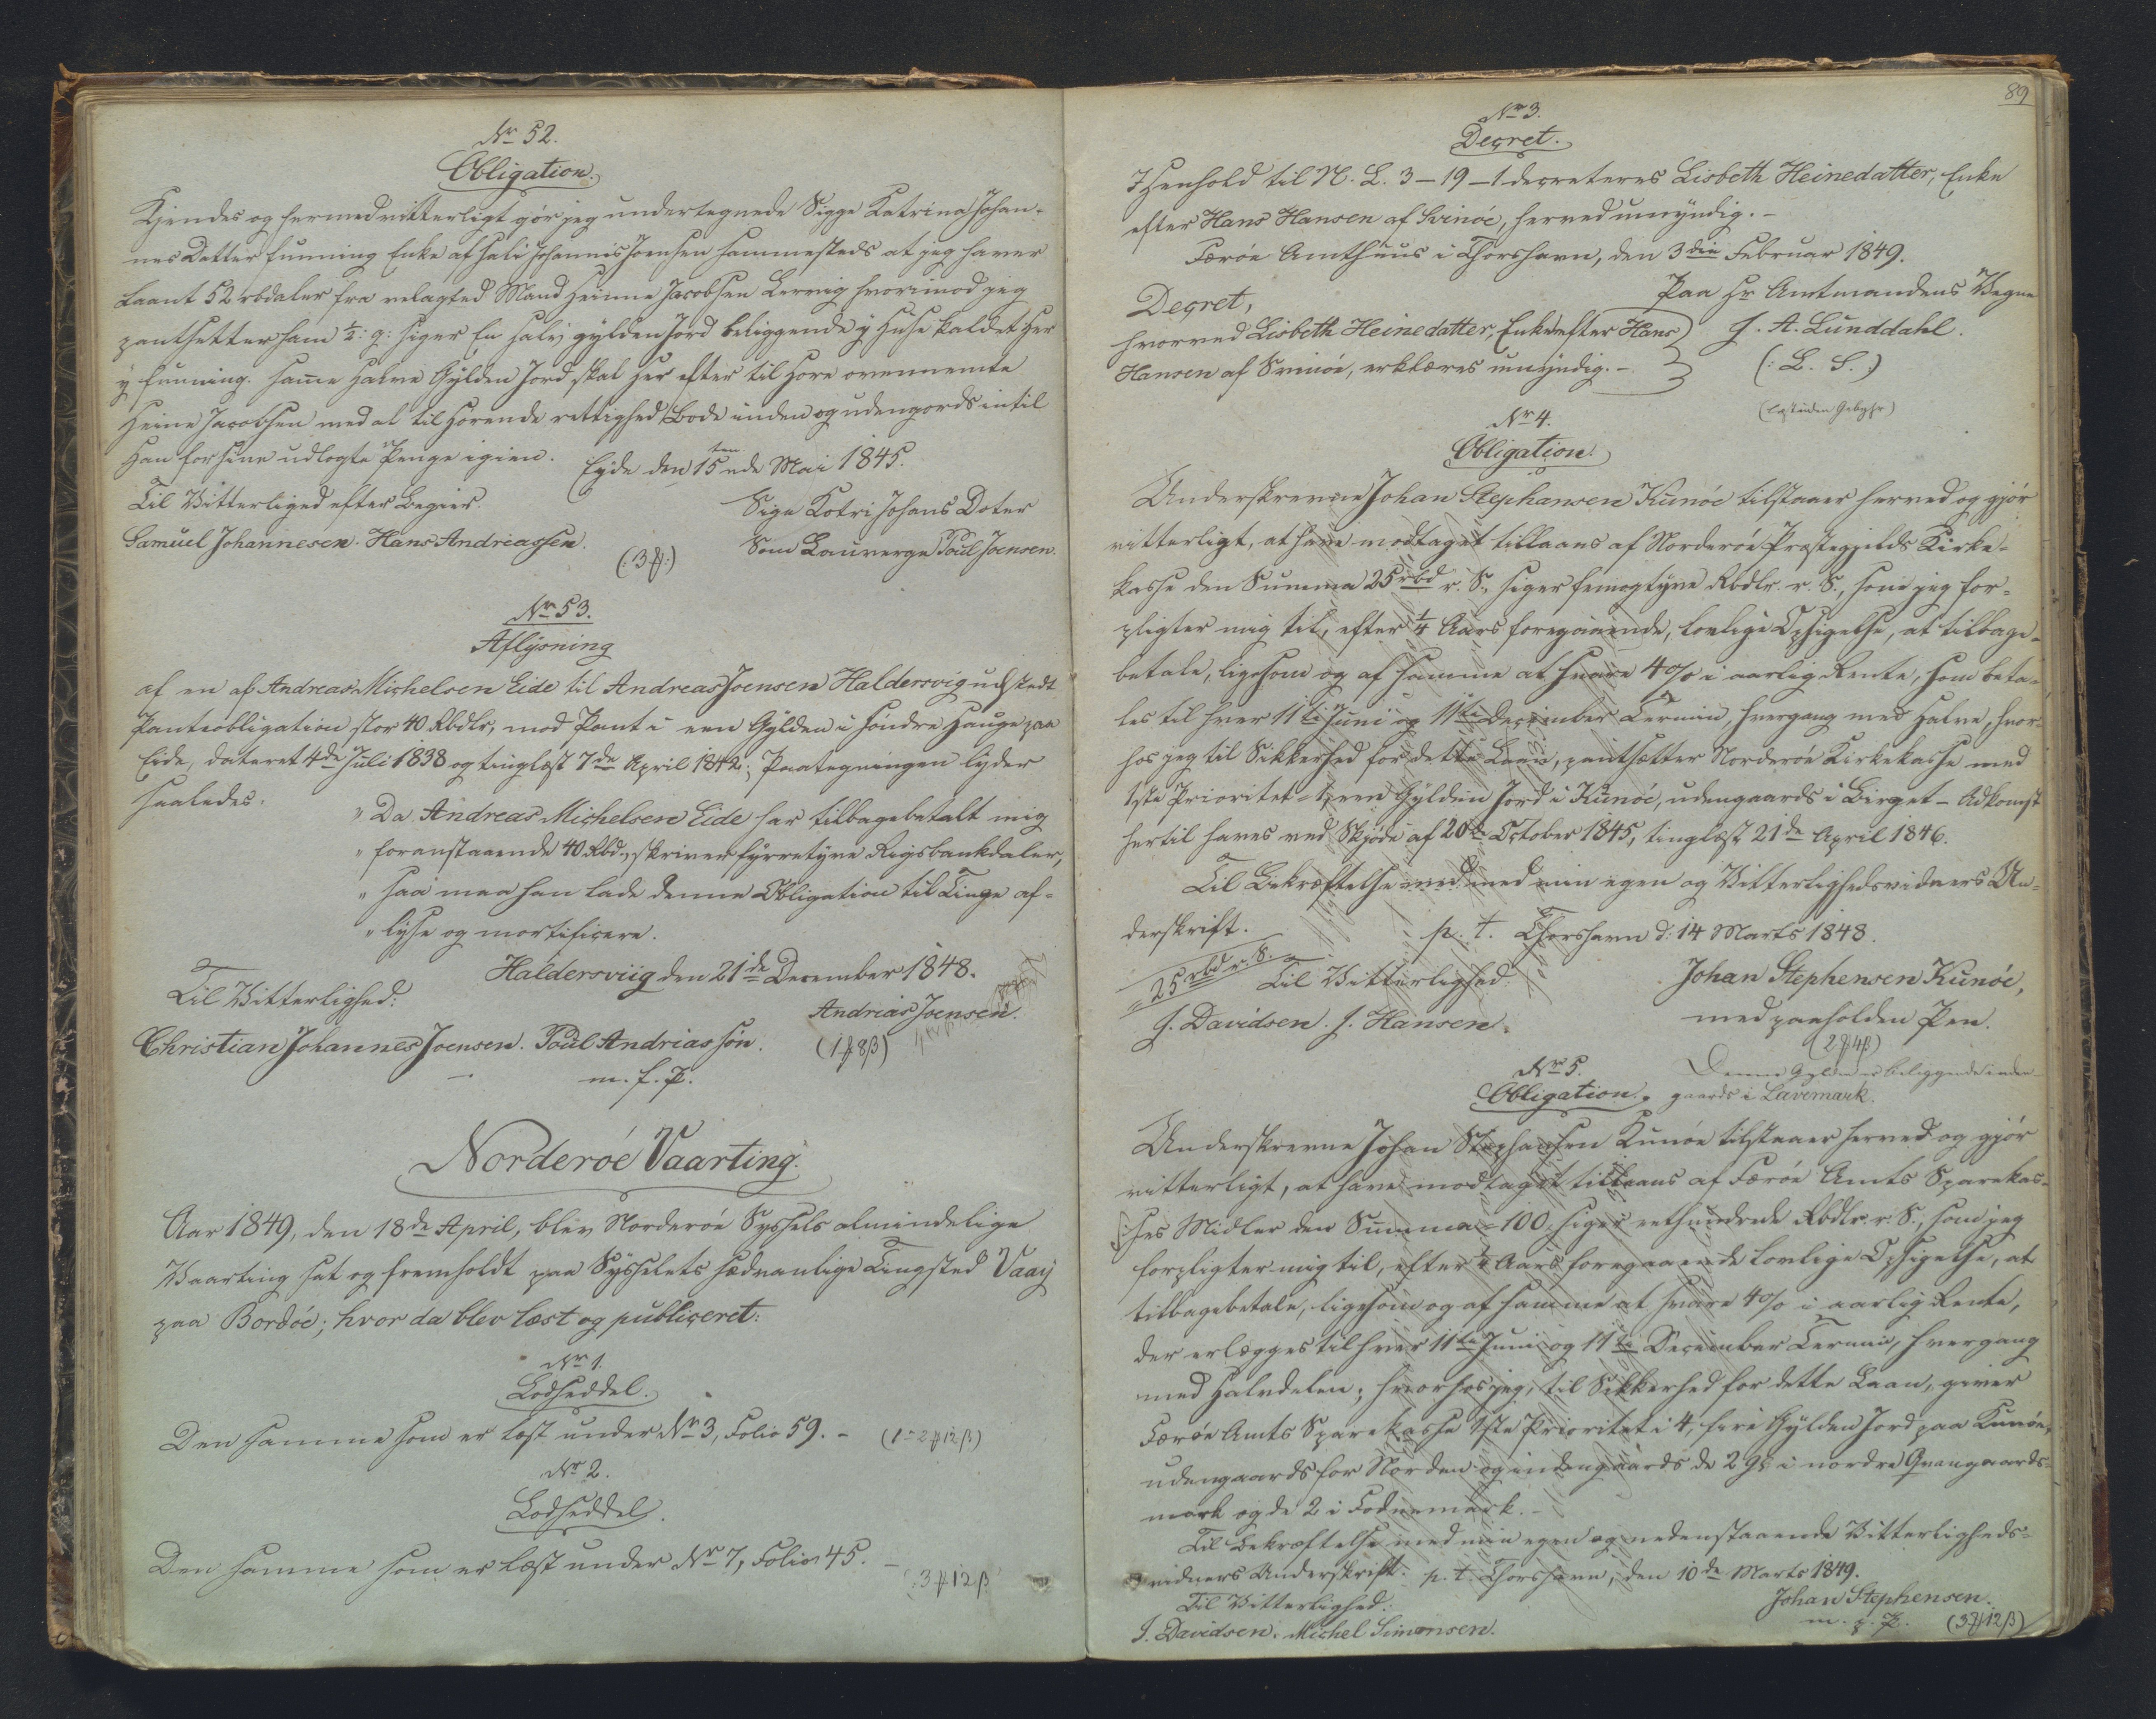 No 52.
Obligation.
Kjendes og hermed vitterligt gör jeg undertegnede Sigge Katrina Johan-
nes Datter Funning Enke af Sali Johannis Joensen sammesteds at jeg haver
laant 52 rbdaler fra velagted Mand Heinne Jacobsen Lervig hvorimod jeg
pantsetter ham ½: g: siger En halv gylden Jord beliggende y Huse kaldet her
y Funning. Samme Halve Gylden Jord skal her efter til höre ovennemte
Heine Jacobsen med al til hörende rettighed Bode inden og udengords intil
Han for sine udlagte Penge igien.
Eyde den 15ten ede Mai 1845.
Til Vitterliged efter Begier.
Sige Kotri Johans Doter
Samuel Johannesen. Hans Andreassen.
Som Lauverge Poul Joensen.
(:3 ꝑ:)
No 53.
Aflysning
af en af Andreas Michelsen Eide til Andreas Joensen Haldersvig udstedt
Panteobligation stor 40 Rbdlr, mod Pant i een Gylden i Söndre Hauge paa
Eide, dateret 4de Juli 1838 og tinglæst 7de April 1842; Paategningen lyder
saaledes:
"Da Andreas Michelsen Eide har tilbagebetalt mig
"foranstaaende 40 Rbd., skriver fyrretyve Rigsbankdaler,
"saa maa han lade denne Obligation til Tinge af-
"lyse og mortificere.
Haldersviig den 21de December 1848.
Til Vitterlighed:
Andrias Joensen.
Christian Johannes Joensen. Poul Andrias sön.
(1ꝑ 8β)
m. f. P.
Norderöe Vaarting.
Aar 1849, den 18de April, blev Norderöe Syssels almindelige
Vaarting sat og fremholdt paa Sysselets sædvanlige Tingsted Vaay
paa Bordöe; hvor da blev læst og publiceret:
No 1.
Lodseddel.
Den samme som er læst under No 3, Folio 59. - (1 - 2ꝑ 12β)
No 2.
Lodseddel.
Den samme som er læst under No 7, Folio 45. -
(:3ꝑ 12β
89
No 3.
Decret.
I Henhold til N. L. 3-19-1 decreteres Lisbeth Heinedatter, Enke
efter Hans Hansen af Svinöe, herved umyndig. -
Færöe Amthuus i Thorshavn, den 3die Februar 1849.
Paa Hr Amtmandens Vegne
Decret,
hvorved Lisbeth Heinedatter, Enke efter Hans
J. A. Lunddahl.
Hansen af Svinöe, erklæres umyndig. -
(: L. S. :)
(læst uden Gebyhr)
No 4.
Obligation.
Underskrevne Johan Stephansen Kunöe tilstaaer herved og gjör
vitterligt, at have modtaget tillaans af Norderöe Præstegjelds Kirke-
kasse den Summa 25 rbd r. S., siger femogtyve Rbdlr. r. S., som jeg for-
pligter mig til, efter ¼ Aars foregaaende, lovlige Opsigelse, at tilbage-
betale, ligesom og af samme at svare 4% i aarlig Rente, som beta-
les til hver 11te Juni og 11te December Termin, hvergang med Halve, hvor-
hos jeg til Sikkerhed for dette Laan, pantsætter Norderöe Kirkekasse med
1ste Prioritet - 1, een Gylden Jord i Kunöe, udengaards i Birget - Adkomst
hertil haves ved Skjöde af 20de October 1845, tinglæst 21de April 1846.
Til Bekræftelse med min egen og Vitterlighedsvidners Un-
derskrift.
p. t. Thorshavn d: 14 Marts 1848.
25 rbd r. S.
Til Vitterlighed:
Johan Stephensen Kunöe,
J. Davidsen. J. Hansen.
med paaholden Pen.
(2ꝑ 4β)
No 5.
Denne Gylden er beliggende inden-
Obligation.
gaards i Lavemark.
Underskrevne Johan Stephansen Kunöe tilstaaer herved og gjör
vitterligt, at have modtaget tillaans af Færöe Amts Sparekas-
ses Midler den Summa - 100, siger eethundrede Rbdlr. r. S., som jeg
forpligter mig til, efter ¼ Aars foregaaende lovlige Opsigelse, at
tilbagebetale, ligesom og af samme at svare 4% i aarlig Rente,
der erlægges til hver 11te Juni og 11te December Termin, hvergang
med Halvdelen; hvorhos jeg, til Sikkerhed for dette Laan, giver
Færöe Amts Sparekasse 1ste Prioritet i 4, fire Gylden Jord paa Kunöe,
udengaards for Norden og indengaards de 2 Gl. i nordre Grangaards-
mark og de 2 i Todnemark. -
Til Bekræftelse med min egen og nedenstaaende Vitterligheds-
vidners Underskrift. p. t. Thorshavn, den 10de Marts 1849.
Til Vitterlighed:
Johan Stephensen.
J. Davidsen. Michel Simonsen.
m. p. P.
(3ꝑ 12β)